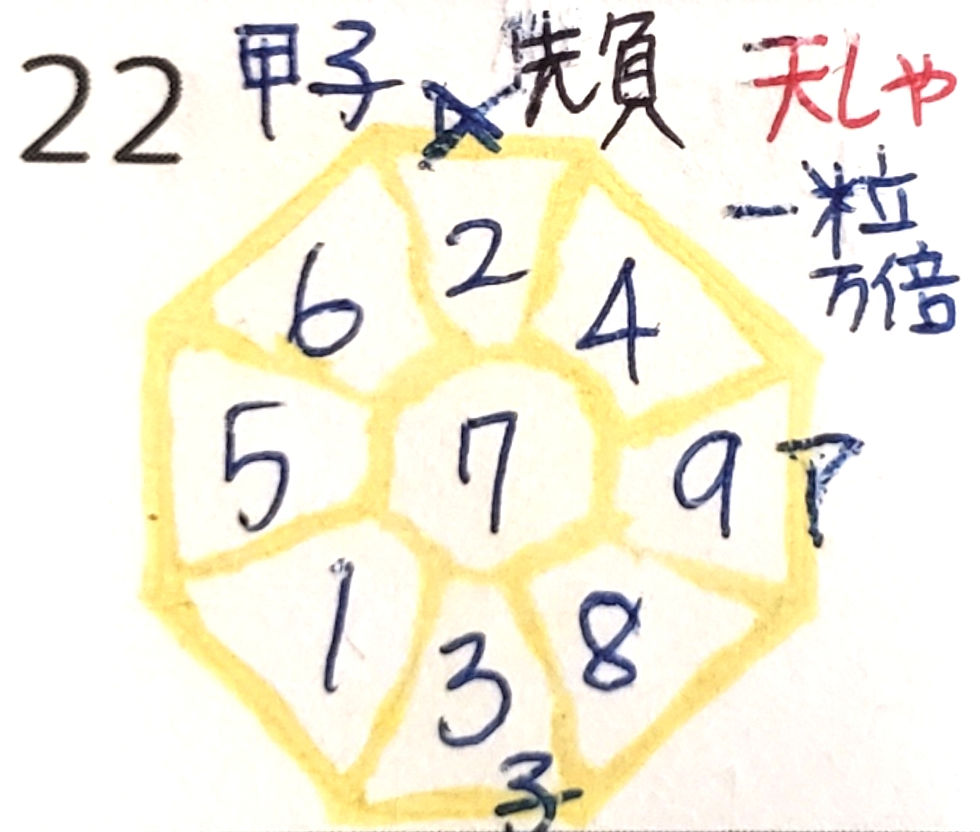 22 甲子 先負 天しゃ
一粒
万倍
2
6 4
5 7 9 ア
1 3 8
子